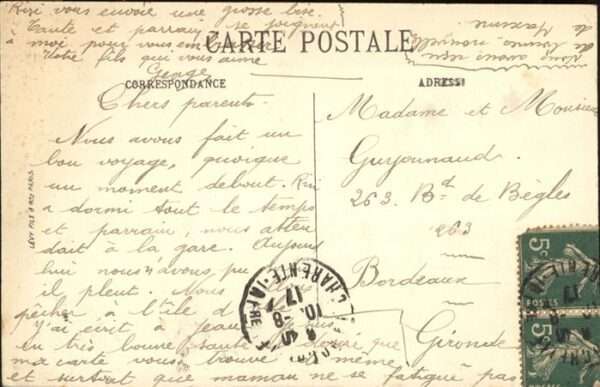 Riri vous envoie une grosse bise.
Tante et parrain se joignent
à moi pour vous em
Votre fils qui vous aime
George
CARTE POSTALE
Nous avons
de bonnes nouvelles
de Maxime
CORRESPONDANCE
ADRESSE
Chers parents
Nous avons fait un
bon voyage, quoique
un moment debout. Riri
a dormi tout le temps
et parrain, nous atten
dait à la gare. Aujour
hui nous n'avons pu
il pleut. Nous
pêcher à l'île d
J'ai écrit à Jean
en très bonne santé que
ma carte vous trouve même
et surtout que maman ne se fatigue pas
Madame et Monsieur
Guyonnaud.
263. Bd de Bègles
263
Bordeaux
Gironde
LÉVY FILS & Cie PARIS
CHARENTE-INFRE
17
10-8
5c
POSTES
5c
CHARENTE-IN
17